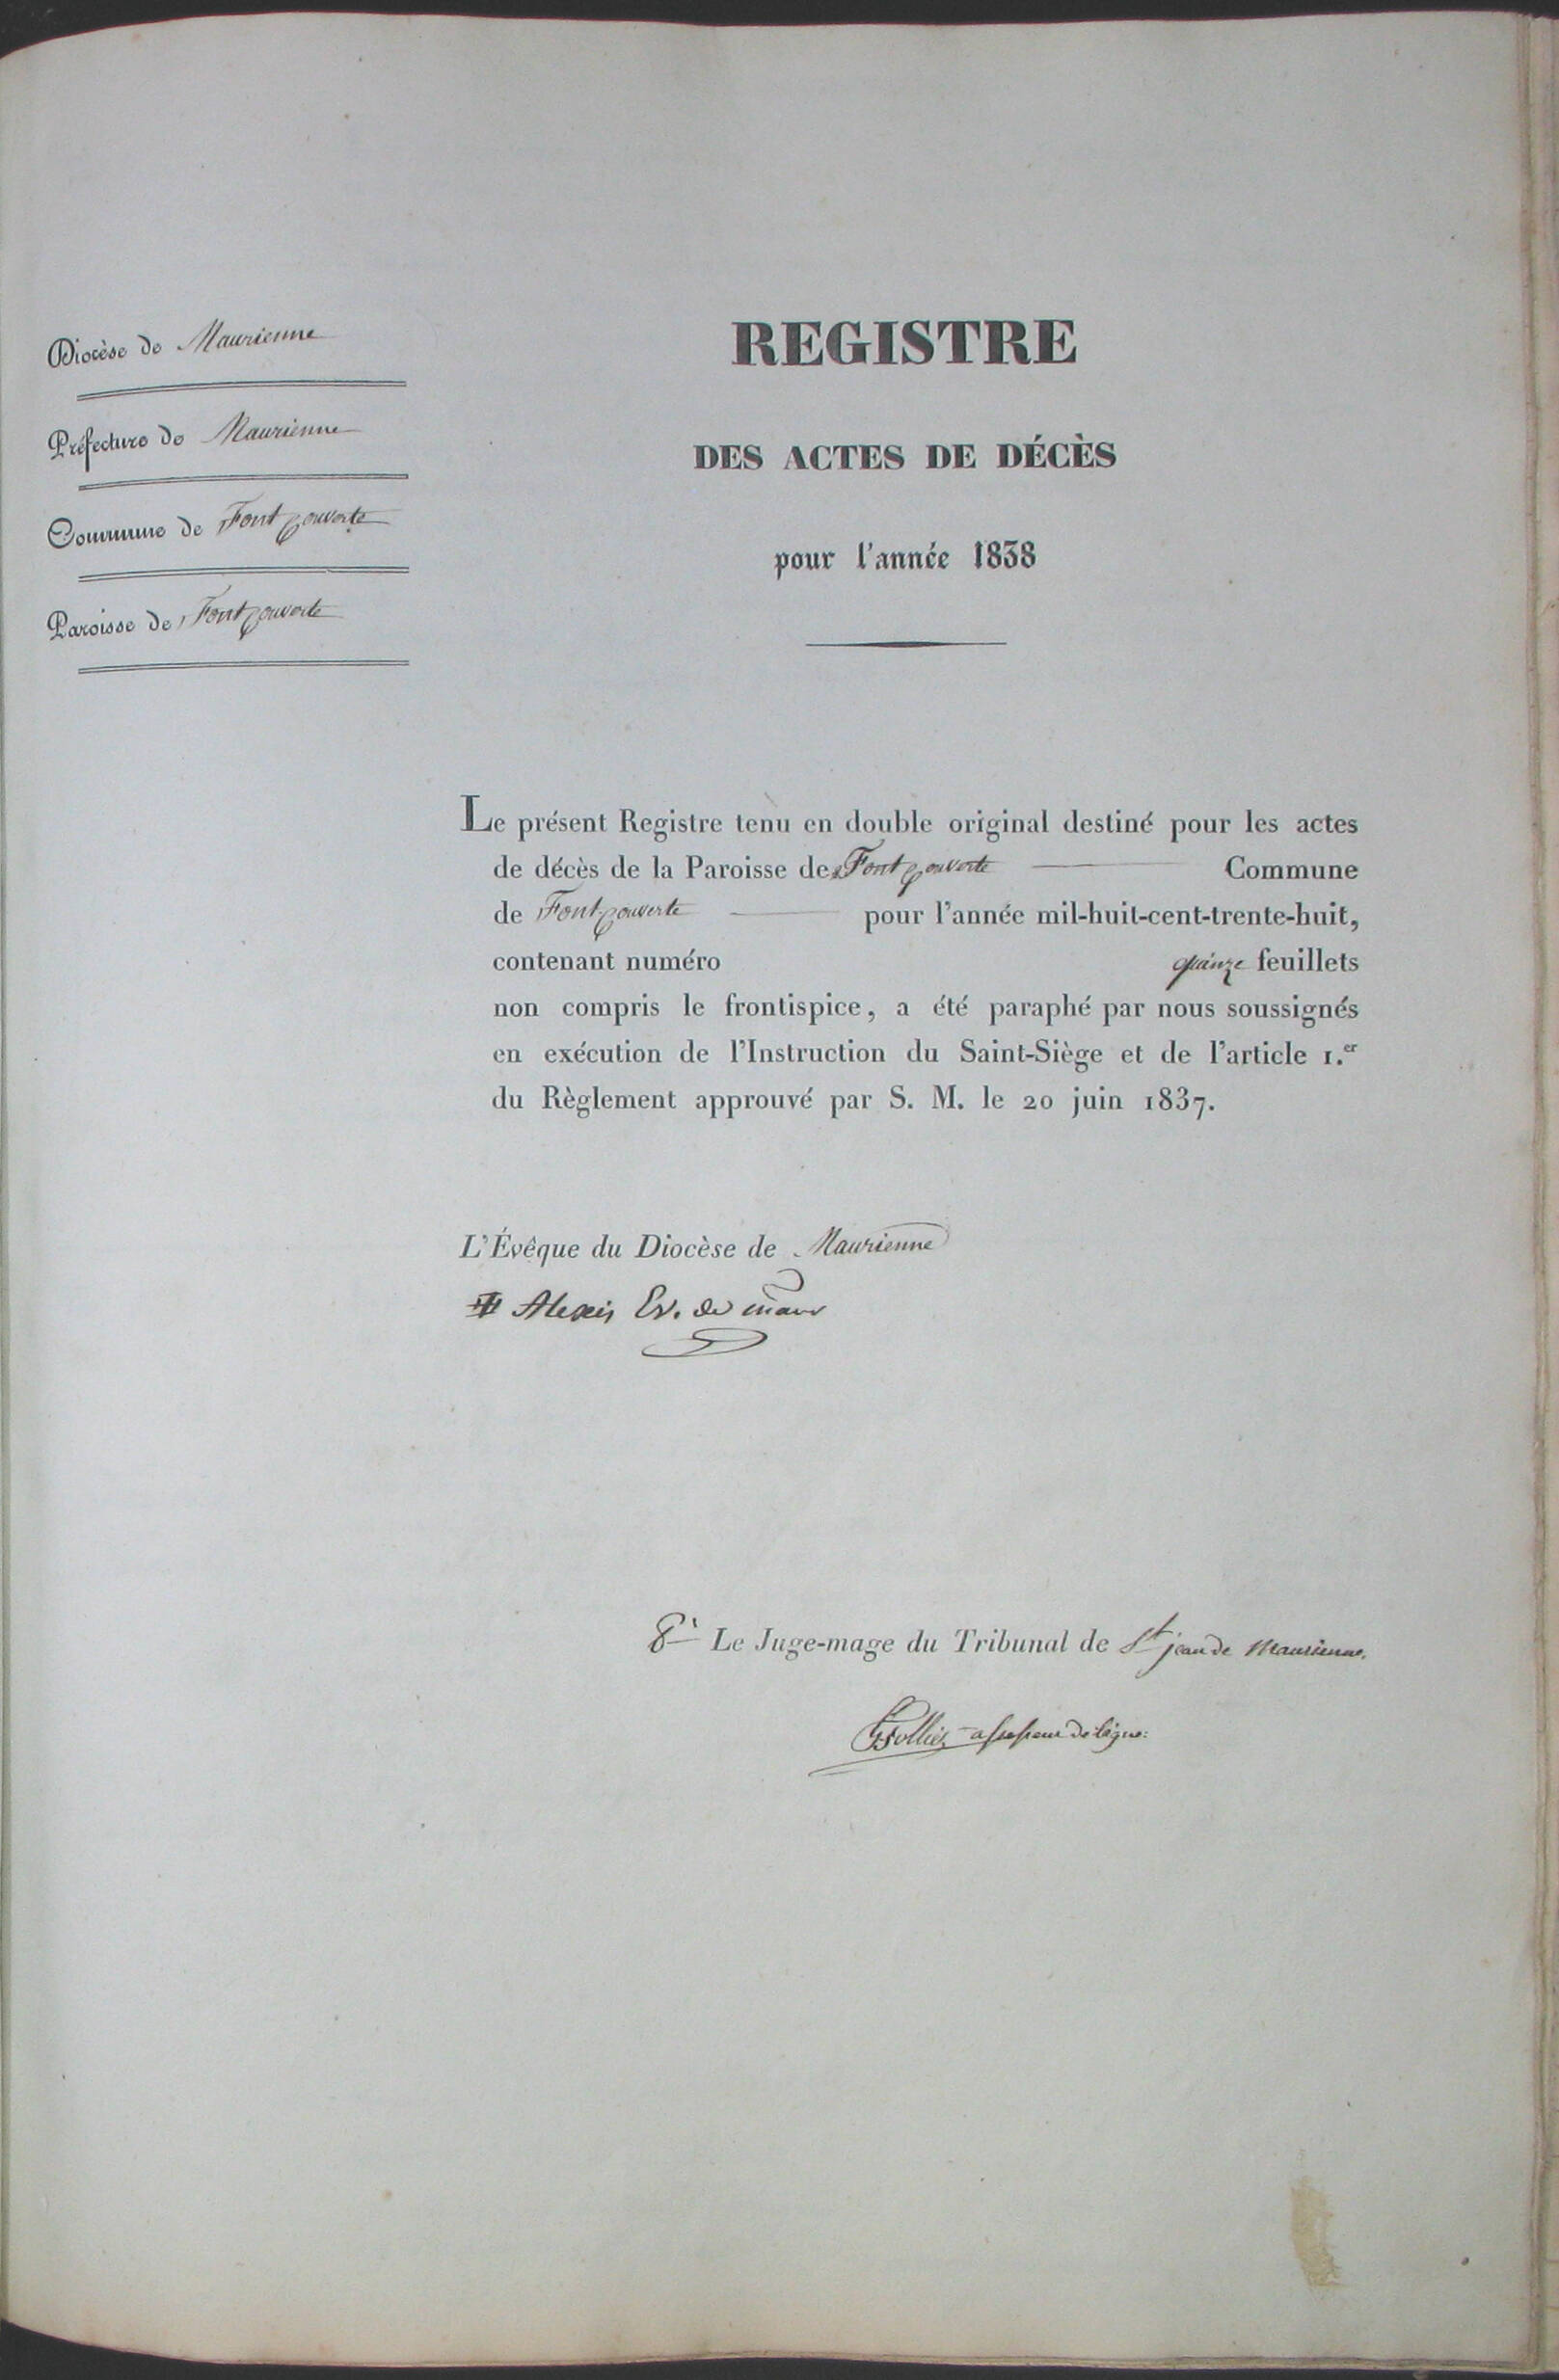 Diocèse de Maurienne
Préfecture de Maurienne
Commune de Fontcouverte
Paroisse de Fontcouverte
REGISTRE
DES ACTES DE DÉCÈS
pour l'année 1838
Le présent Registre tenu en double original destiné pour les actes
de décès de la Paroisse de Fontcouverte Commune
de Fontcouverte pour l'année mil-huit-cent-trente-huit,
contenant numéro quinze feuillets
non compris le frontispice, a été paraphé par nous soussignés
en exécution de l'Instruction du Saint-Siège et de l'article 1.er
du Règlement approuvé par S. M. le 20 juin 1837.
L'Évêque du Diocèse de Maurienne
Alexis Ev. de maur
Le Juge-mage du Tribunal de St jean de Maurienne.
assesseur